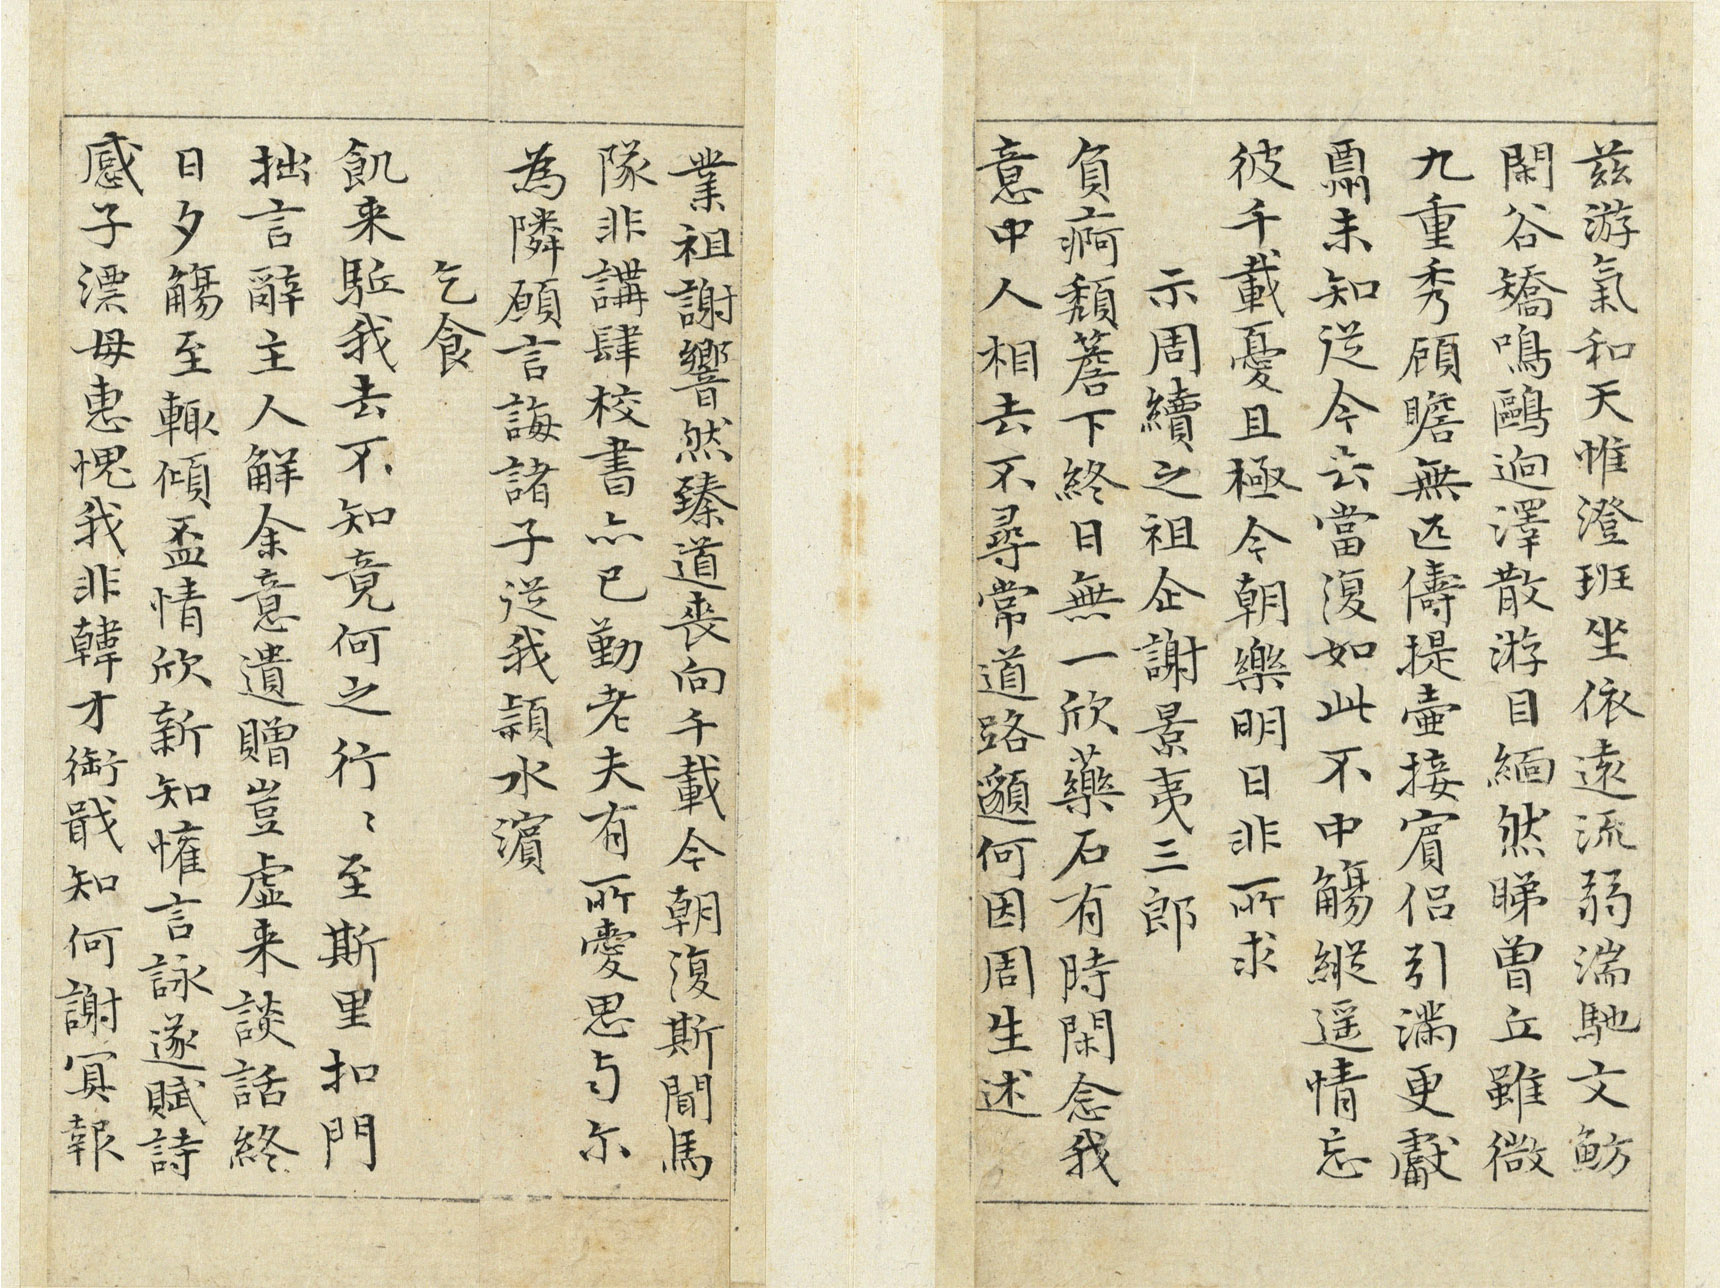 茲游氣和天惟澄班坐依遠流弱湍馳文魴
閑谷矯鳴鷗迥澤散游目緬然睇曾丘雖微
九重秀顧瞻無匹儔提壷接賓侶引滿更獻
酬未知從今去當復如此不中觴縱遥情忘
彼千載憂且極今朝樂明日非所求
示周續之祖企謝景夷三郎
負痾頹簷下終日無一欣藥石有時閑念我
意中人相去不尋常道路邈何因周生述
業祖謝響然臻道喪向千載今朝復斯聞馬
隊非講肆校書亦已勤老夫有所愛思与尔
為隣願言誨諸子從我潁水濱
乞食
飢来駈我去不知竟何之行〻至斯里扣門
拙言辭主人解余意遺贈豈虚来談話終
日夕觴至輙傾盃情欣新知懽言詠遂賦詩
感子漂母惠愧我非韓才銜戢知何謝冥報